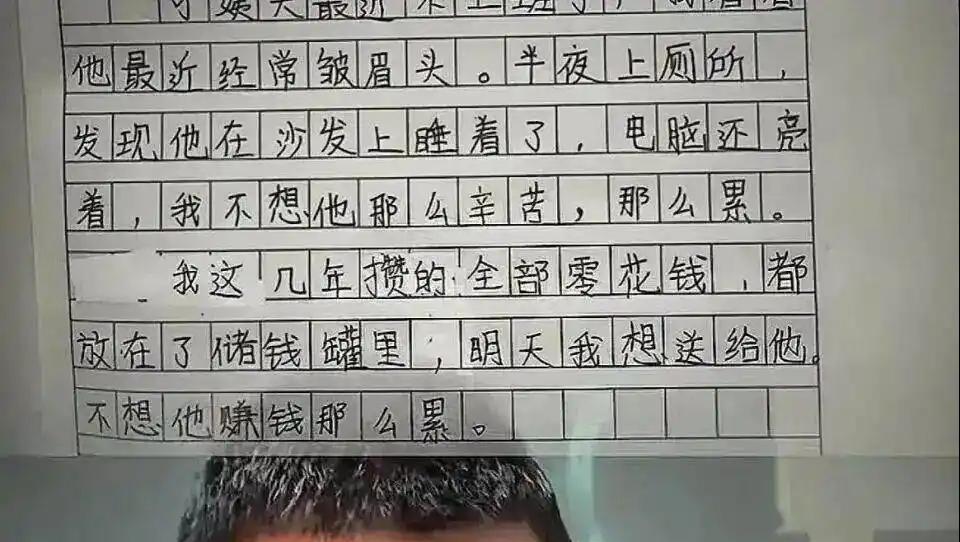 他最近经常皱眉头。半夜上厕所,
发现他在沙发上睡着了,电脑还亮
着,我不想他那么辛苦,那么累。
我这几年攒的全部零花钱,都
放在了储钱罐里,明天我想送给他。
不想他赚钱那么累。